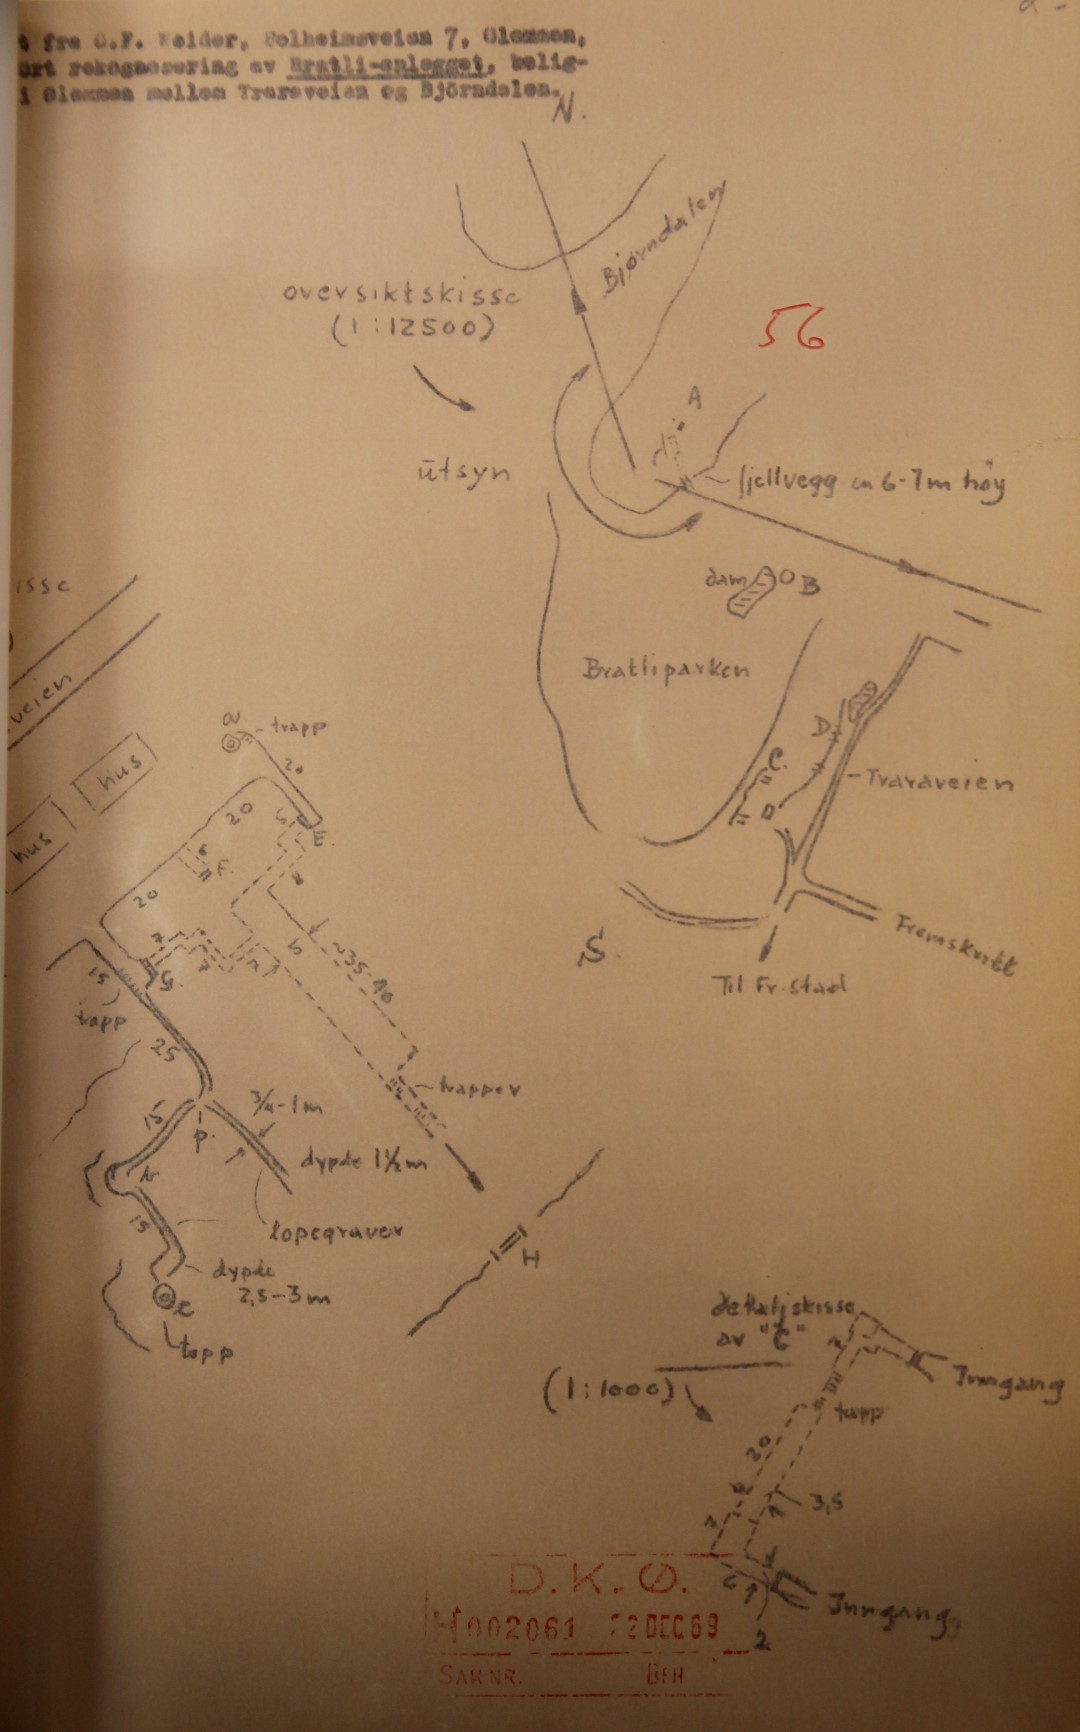 fra O.F. Neider, Solheimsveien 7, Glemmen,
ört rekognosering av Bratli-anlegget, belig-
i Glemmen mellom Traraveien og Björndalen.
N.
Bjørndalen
oversiktskisse
(1:12500)
56
A
utsyn
fjellvegg ca 6-7m høy
dam
B
isse
Bratliparken
veien
trapp
D
C.
20
hus
Traraveien
20
5
E.
D
hus
6
F
20
8
Fremskritt
5
~35-40
S.
7
G.
7
7
7
15
Til Fr.stad
trapp
25
trapper
3/4-1m
15
P.
dypde 1½m
N
15
løpegraver
H
dypde
2,5-3m
topp
detaljskisse
av "C"
Inngang
(1:1000)
trapp
20
3,5
D.K.Ø.
6
Inngang
H 002061 22 DEC 69
2
SAKNR. BEH